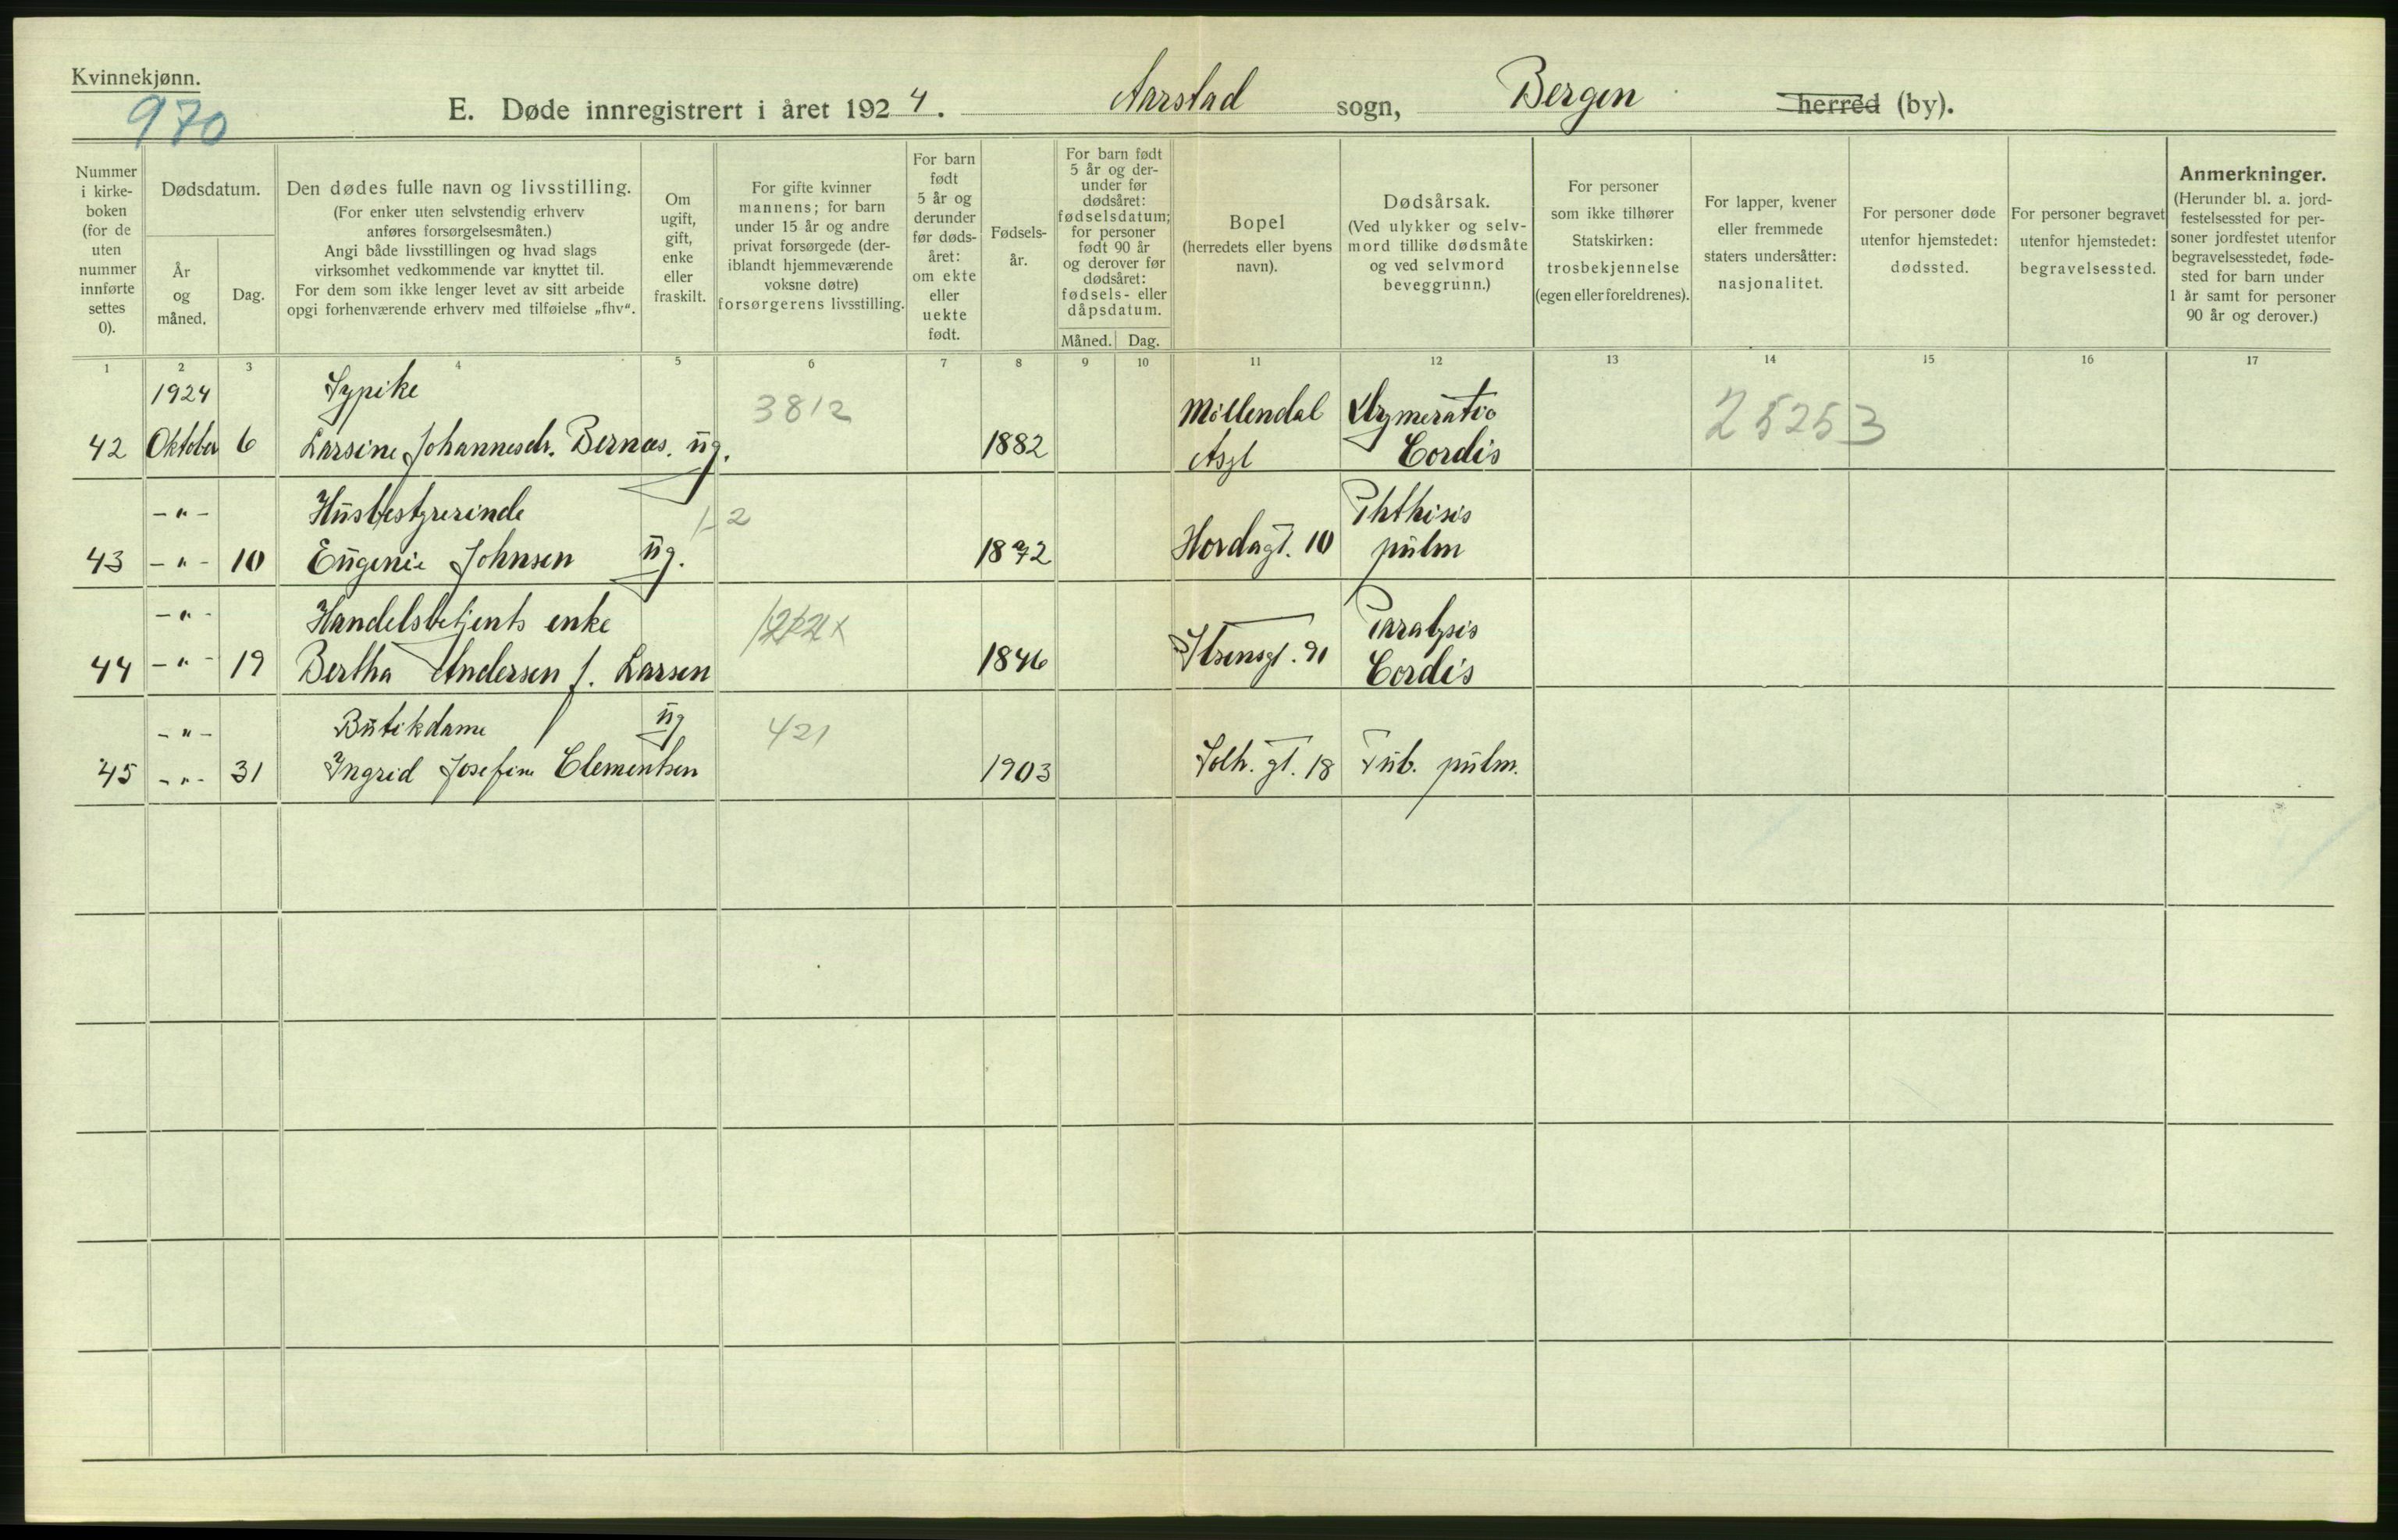 Kvinnekjønn.
970
E. Døde innregistrert i året 1924. Aarstad sogn, Bergen herred (by).
Nummer i kirke- boken (for de uten nummer innførte settes 0).
Dødsdatum.
År og måned.
Dag.
Den dødes fulle navn og livsstilling.
(For enker uten selvstendig erhverv
anføres forsørgelsesmåten.)
Angi både livsstillingen og hvad slags
virksomhet vedkommende var knyttet til.
For dem som ikke lenger levet av sitt arbeide
opgi forhenværende erhverv med tilføielse „fhv“.
Om ugift, gift, enke eller fraskilt.
For gifte kvinner
mannens; for barn
under 15 år og andre
privat forsørgede (der-
iblandt hjemmeværende
voksne døtre)
forsørgerens livsstilling.
For barn født 5 år og derunder før døds- året: om ekte eller uekte født.
Fødsels- år.
For barn født
5 år og der-
under før
dødsåret:
fødselsdatum;
for personer
født 90 år
og derover før
dødsåret:
fødsels- eller
dåpsdatum.
Måned. Dag.
Bopel
(herredets eller byens
navn).
Dødsårsak.
(Ved ulykker og selv-
mord tillike dødsmåte
og ved selvmord
beveggrunn.)
For personer
som ikke tilhører
Statskirken:
trosbekjennelse
(egen eller foreldrenes).
For lapper, kvener
eller fremmede
staters undersåtter:
nasjonalitet.
For personer døde
utenfor hjemstedet:
dødssted.
For personer begravet
utenfor hjemstedet:
begravelsessted.
Anmerkninger.
(Herunder bl. a. jord-
festelsessted for per-
soner jordfestet utenfor
begravelsesstedet, føde-
sted for barn under
1 år samt for personer
90 år og derover.)
1 2 3 4 5 6 7 8 9 10 11 12 13 14 15 16 17
1924 Sypike 3812 Møllendal 25253
42 Oktober 6 Larsine Johannesdr. Bernæs. ug. 1882 Asyl Cordis
-"- Husbestyrerinde Phthisis
43 -"- 10 Eugenie Johnsen ug. 1872 Hordagt. 10 pulm
-"- Handelsbetjents enke Paralysis
44 -"- 19 Bertha Andersen f. Larsen 1846 Cordis
-"- Butikdame ug 421
45 -"- 31 Ingrid Josefine Clementsen 1903 Solh. gt. 18 Tub. pulm.